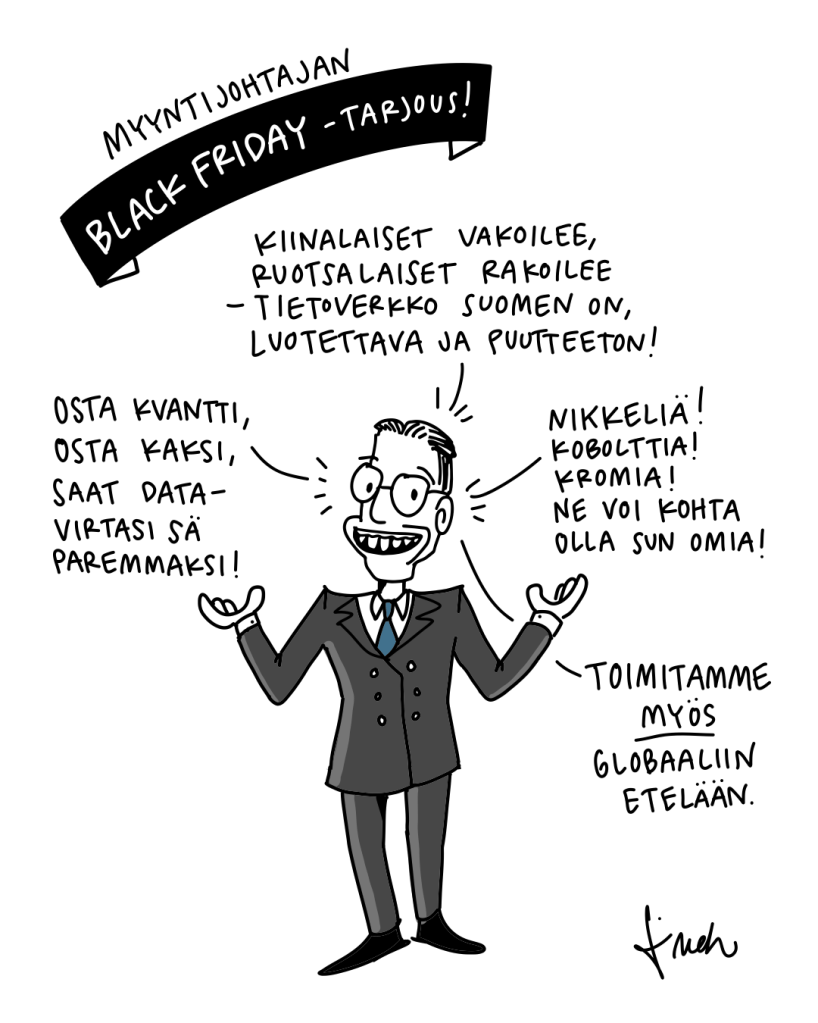 MYYNTIJOHTAJAN
BLACK FRIDAY -TARJOUS!
KIINALAISET VAKOILEE,
RUOTSALAISET RAKOILEE
- TIETOVERKKO SUOMEN ON,
LUOTETTAVA JA PUUTTEETON!
OSTA KVANTTI,
OSTA KAKSI,
SAAT DATA-
VIRTASI SÄ
PAREMMAKSI!
NIKKELIÄ!
KOBOLTTIA!
KROMIA!
NE VOI KOHTA
OLLA SUN OMIA!
TOIMITAMME
MYÖS
GLOBAALIIN
ETELÄÄN.